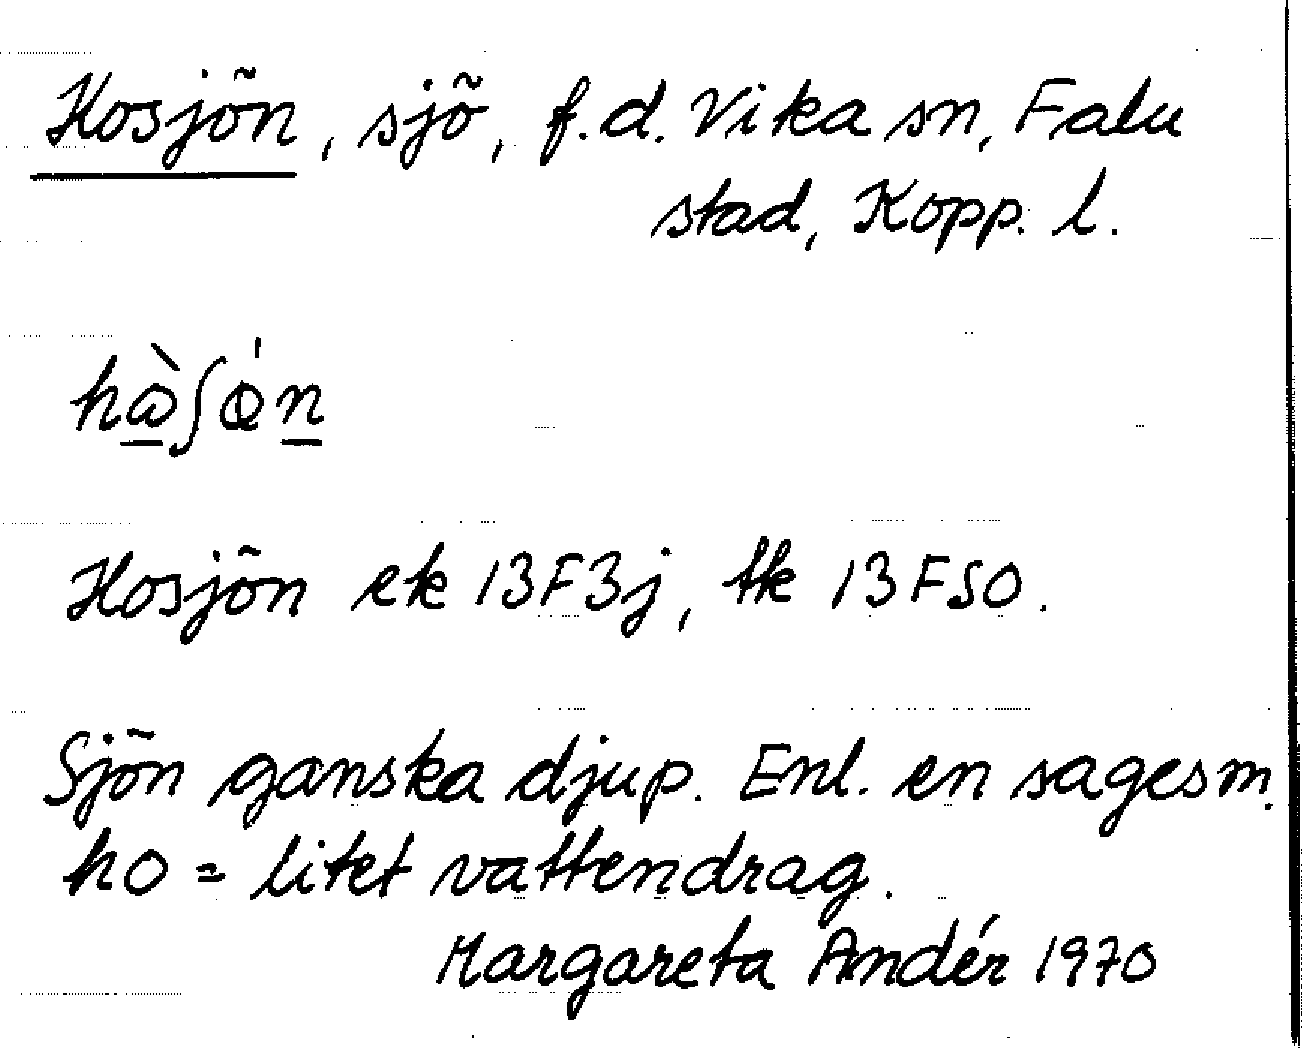 Hosjön, sjö, f.d. Vika sn, Falu
stad, Kopp. l.
Hosjön ek 13F3j, tk 13FSO.
Sjön ganska djup. Enl. en sagesm.
ho = litet vattendrag.
Margareta Andér 1970